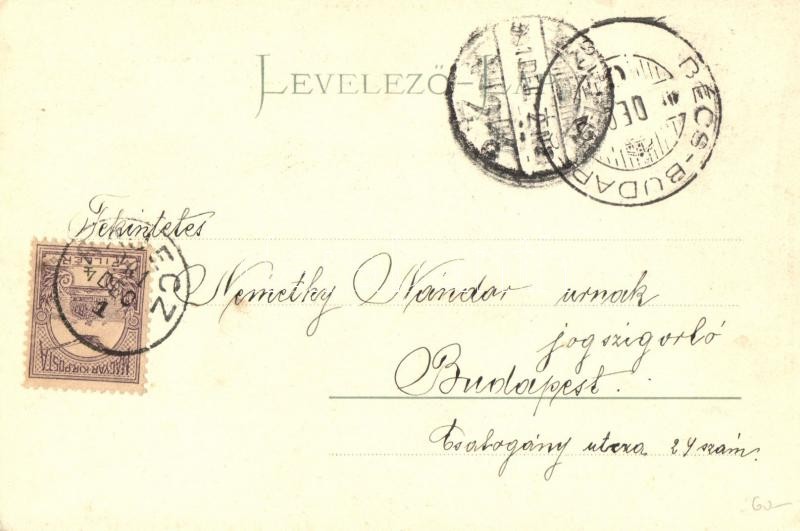 LEVELEZŐ-LAP
BÉCS-BUDAP
DEC
Tekintetes
Németky Nándor urnak
jogszigorló
Budapest.
Csalogány utcza 24 szám.
MAGYAR KIR. POSTA
FILLÉR
ECZ
60